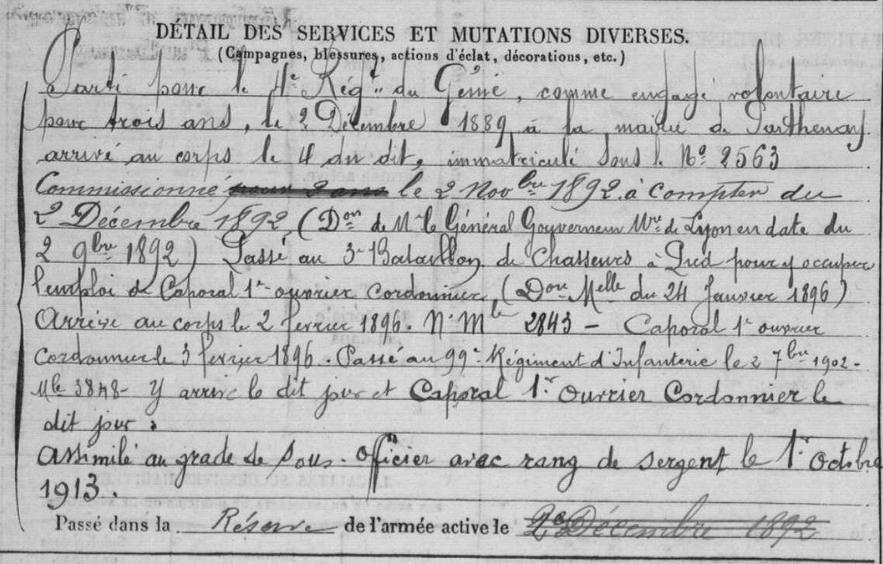 DÉTAIL DES SERVICES ET MUTATIONS DIVERSES.
(Campagnes, blessures, actions d'éclat, décorations, etc.)
Parti pour le 4e Régt du Génie, comme engagé volontaire
pour trois ans, le 2 Décembre 1889, à la mairie de Parthenay
arrivé au corps le 4 du dit, immatriculé sous le No 2563
Commissionné pour 2 ans le 2 Novbre 1892 à compter du
2 Décembre 1892 (Don de Mr le Général Gouverneur Mre de Lyon en date du
2 9bre 1892) Passé au 3e Bataillon de Chasseurs à Pied pour y occuper
l'emploi de Caporal 1er ouvrier cordonnier (Don Melle du 24 Janvier 1896)
Arrivé au corps le 2 février 1896. N. Mle 2843 - Caporal 1er ouvrier
Cordonnier le 3 février 1896. Passé au 99e Régiment d'Infanterie le 2 7bre 1902 -
Mle 3848 - Y arrivé le dit jour et Caporal 1er Ouvrier Cordonnier le
dit jour.
Assimilé au grade de Sous-Officier avec rang de sergent le 1er Octobre
1913.
Passé dans la Réserve de l'armée active le 2 Décembre 1892